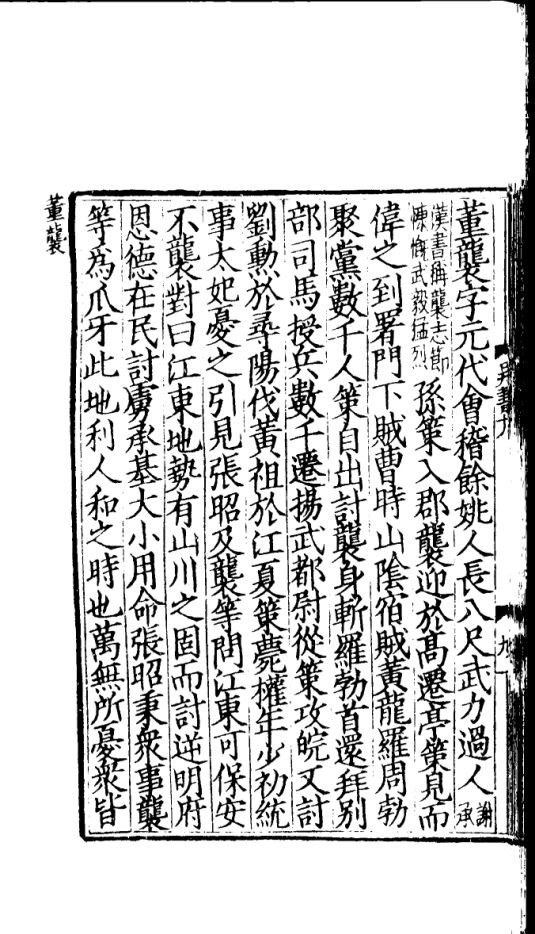 董襲字元代會稽餘姚人長八尺武力過人謝承
漢書稱襲志節
慷慨武毅猛烈
孫策入郡襲迎於髙遷亭策見而
偉之到署門下賊曹時山陰宿賊黃龍羅周勃
聚黨數千人策自出討襲身斬羅勃首還拜別
部司馬授兵數千遷揚武都尉從策攻皖又討
劉勳於尋陽伐黃祖於江夏策薨權年少初統
事太妃憂之引見張昭及襲等問江東可保安
不襲對曰江東地勢有山川之固而討逆明府
恩德在民討虜承基大小用命張昭秉衆事襲
等爲爪牙此地利人和之時也萬無所憂衆皆
董襲